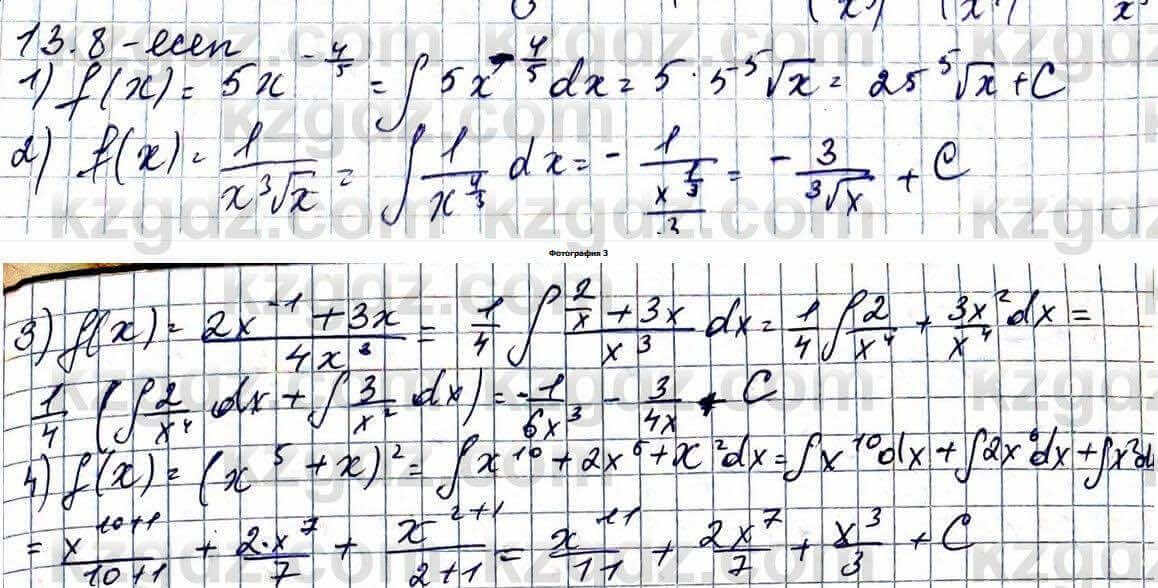 13.8-есеп
1) f(x) = 5x^(-4/5) = ∫ 5x^(-4/5) dx = 5 · 5 ⁵√x = 25 ⁵√x + C
2) f(x) = 1/(x ³√x) = ∫ 1/x^(4/3) dx = - 1/(x^(1/3)/3) = - 3/³√x + C
Фотография 3
3) f(x) = (2x^(-1) + 3x)/(4x^3) = 1/4 ∫ (2/x + 3x)/x^3 dx = 1/4 ∫ 2/x^4 + 3x^2/x^4 dx =
1/4 (∫ 2/x^4 dx + ∫ 3/x^2 dx) = - 1/(6x^3) - 3/(4x) + C
4) f(x) = (x^5 + x)^2 = ∫ x^10 + 2x^6 + x^2 dx = ∫ x^10 dx + ∫ 2x^6 dx + ∫ x^2 d
= x^(10+1)/(10+1) + (2·x^7)/7 + x^(2+1)/(2+1) = x^11/11 + 2x^7/7 + x^3/3 + C
kzgdz.com